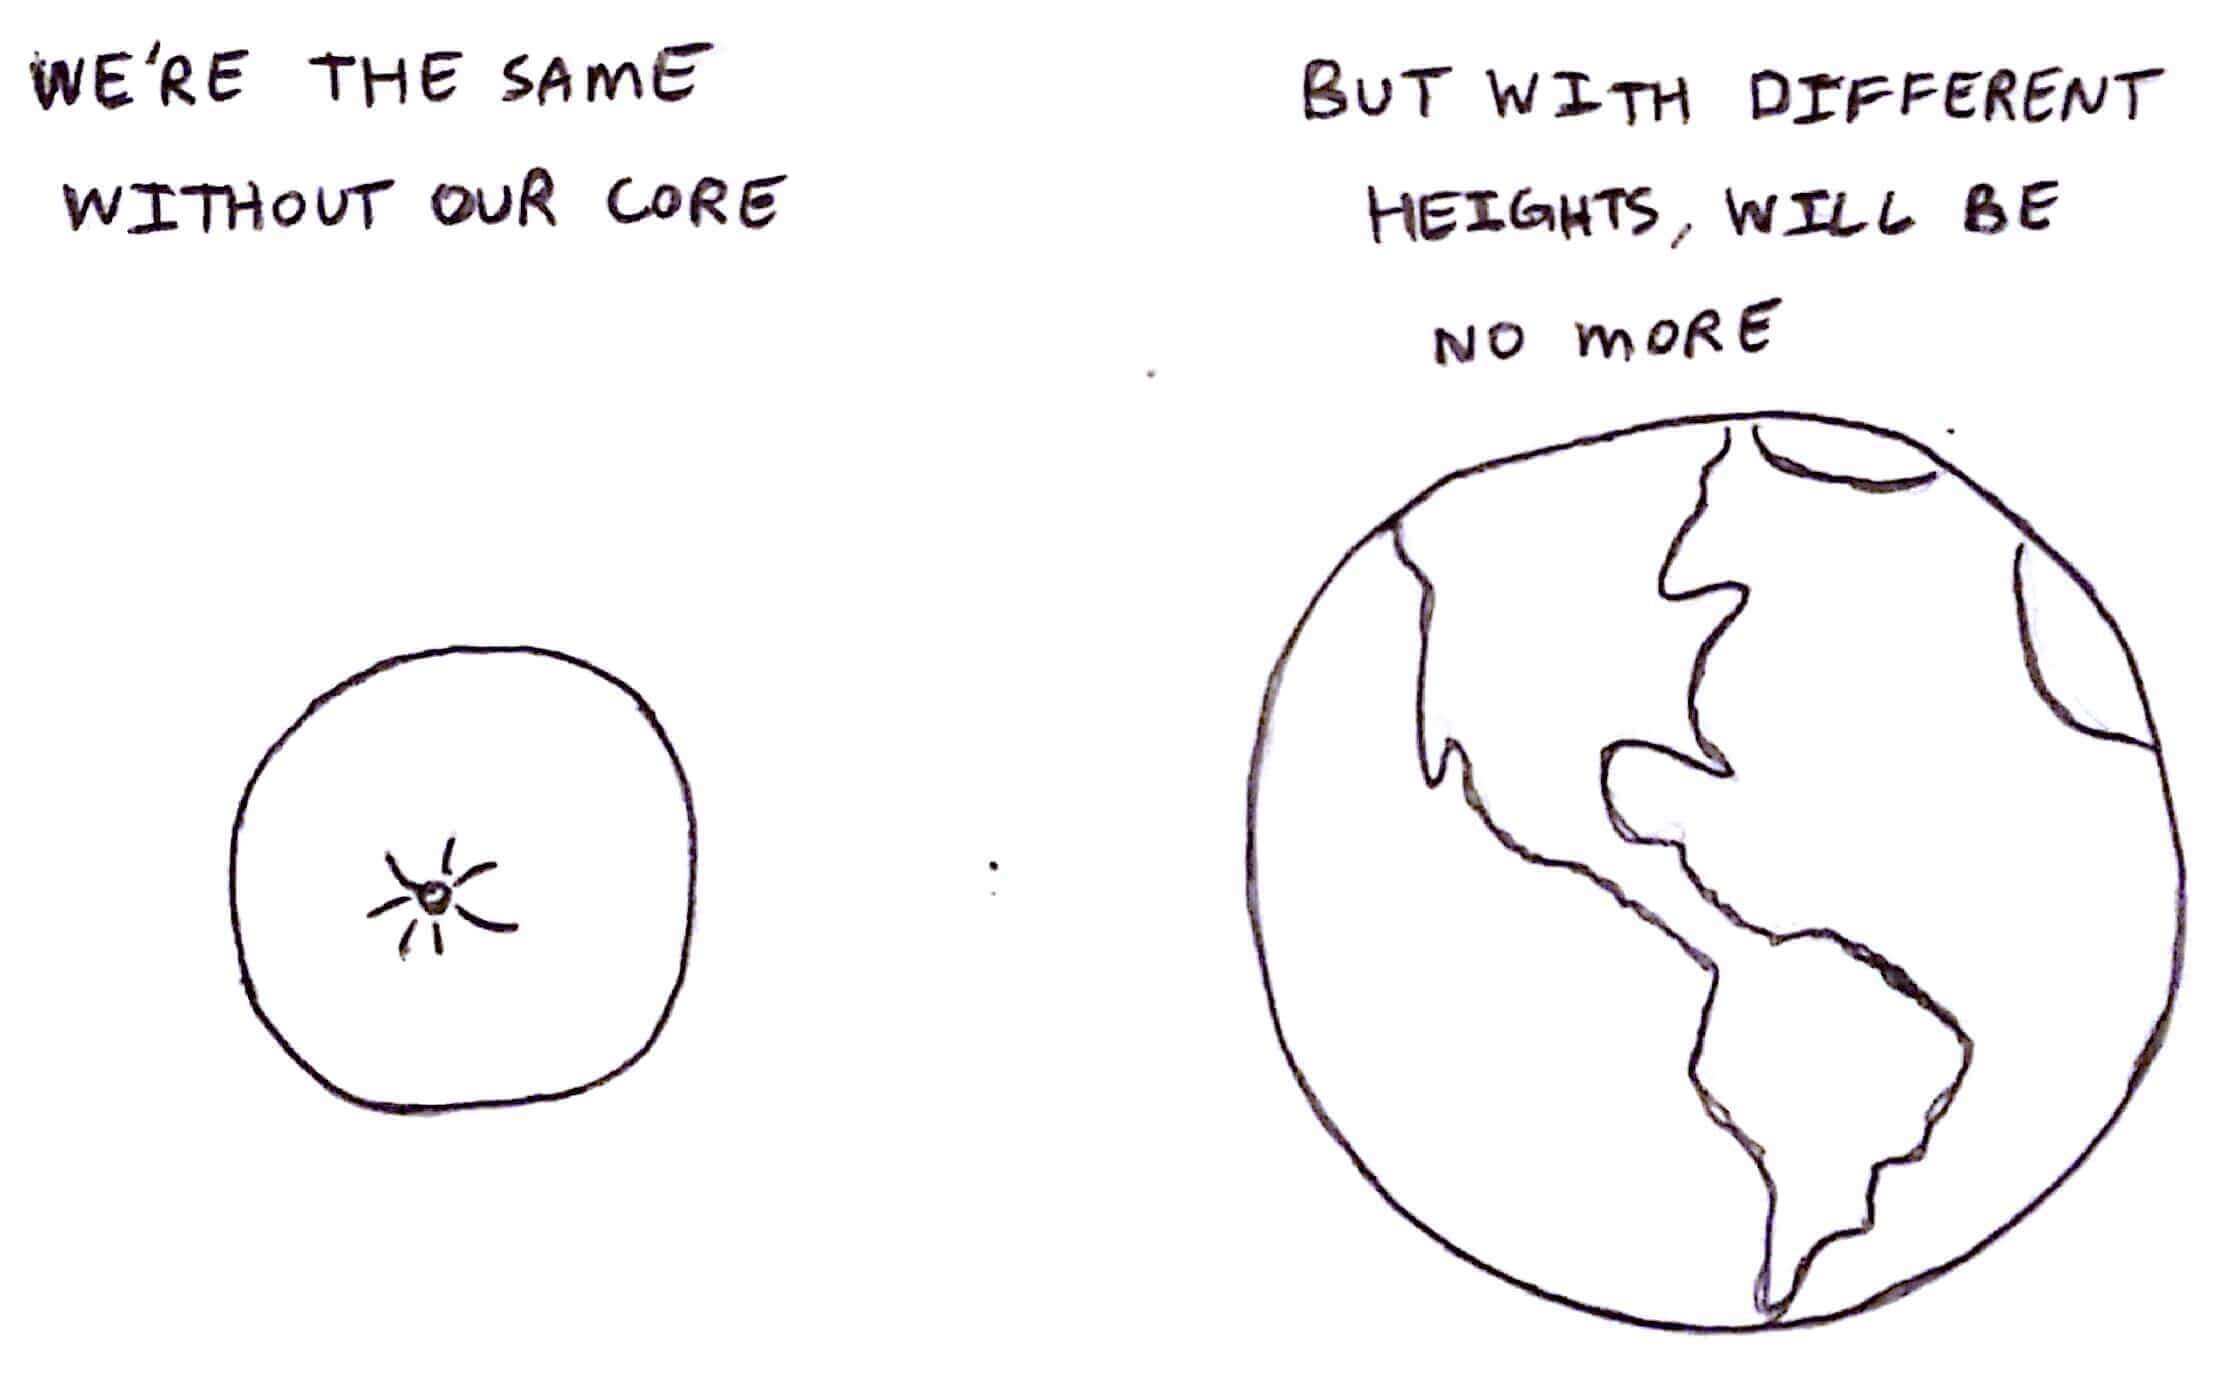 WE'RE THE SAME
WITHOUT OUR CORE
BUT WITH DIFFERENT
HEIGHTS, WILL BE
NO MORE